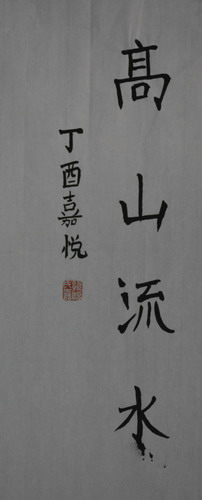 髙山流水
丁酉嘉悦